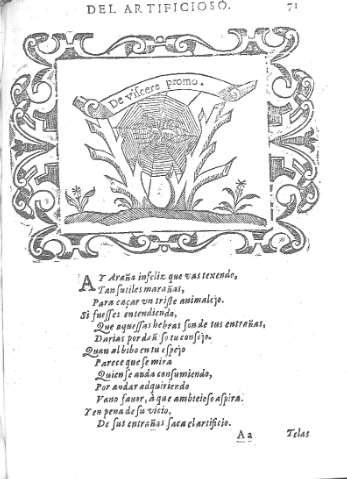 DEL ARTIFICIOSO. 71
De viscere promo.
AY Araña infeliz que vas texendo,
Tan sutiles marañas,
Para caçar vn triste animalejo.
Si fuesses entendiendo,
Que aquessas hebras son de tus entrañas,
Darias por dañoso tu consejo.
Quan al bibo en tu espejo
Parece que se mira
Quien se anda consumiendo,
Por andar adquiriendo
Vano fauor, à que ambicioso aspira.
Y en pena de su vicio,
De sus entrañas saca el artificio.
Aa Telas